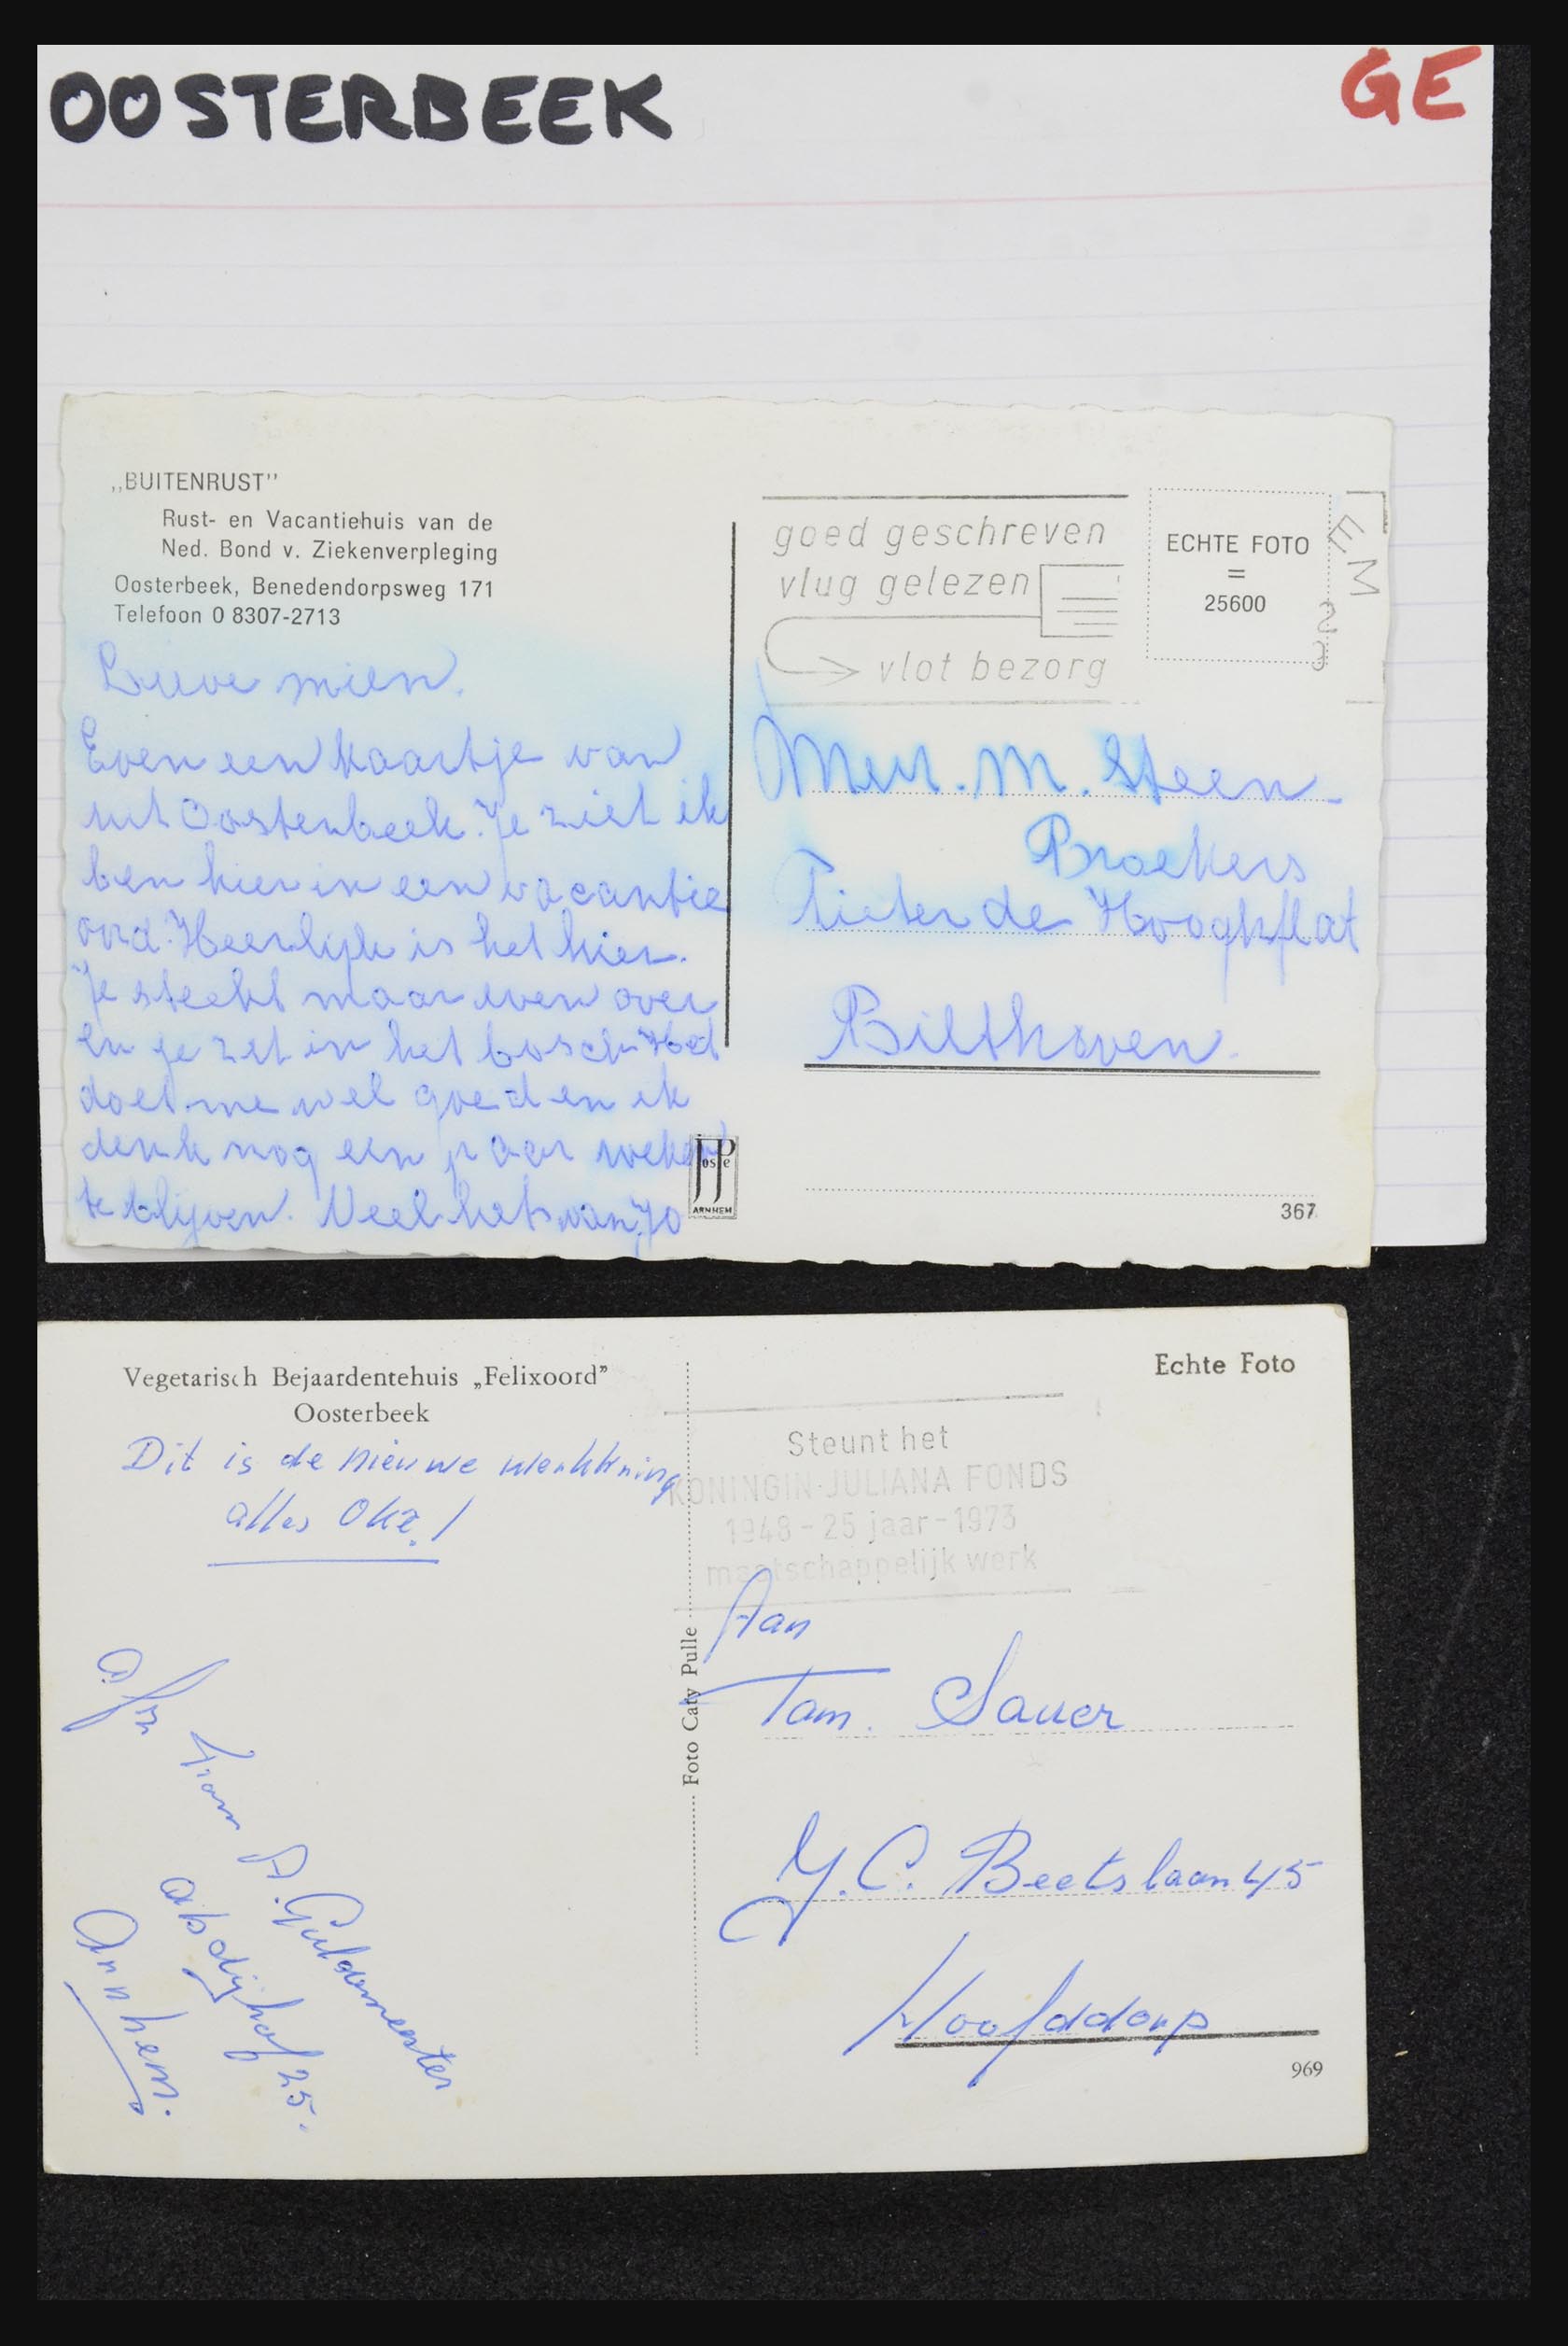 OOSTERBEEK
GE
„BUITENRUST”
Rust- en Vacantiehuis van de
Ned. Bond v. Ziekenverpleging
Oosterbeek, Benedendorpsweg 171
Telefoon 0 8307-2713
Lieve mien.
Even een kaartje van
uit Oosterbeek. Je ziet ik
ben hier in een vacantie
oord. Heerlijk is het hier.
Je steekt maar even over
en je zit in het bosch. Het
doet me wel goed en ik
denk nog een paar weken
te blijven. Veel liefs van Jo
JP
osse
ARNHEM
goed geschreven
vlug gelezen
vlot bezorg
ECHTE FOTO
=
25600
EM
Mevr. M. Steen-
Broekers
Pieter de Hooghflat
Bilthoven.
367
Vegetarisch Bejaardentehuis „Felixoord”
Oosterbeek
Dit is de nieuwe werkkring
alles Oké!
Afz Fam A. Guldemeester
abdijhof 25.
Arnhem.
Foto Caty Pulle
Echte Foto
Steunt het
KONINGIN JULIANA FONDS
1948 - 25 jaar - 1973
maatschappelijk werk
Aan
Fam. Sauer
J.C. Beetslaan 45
Hoofddorp
969